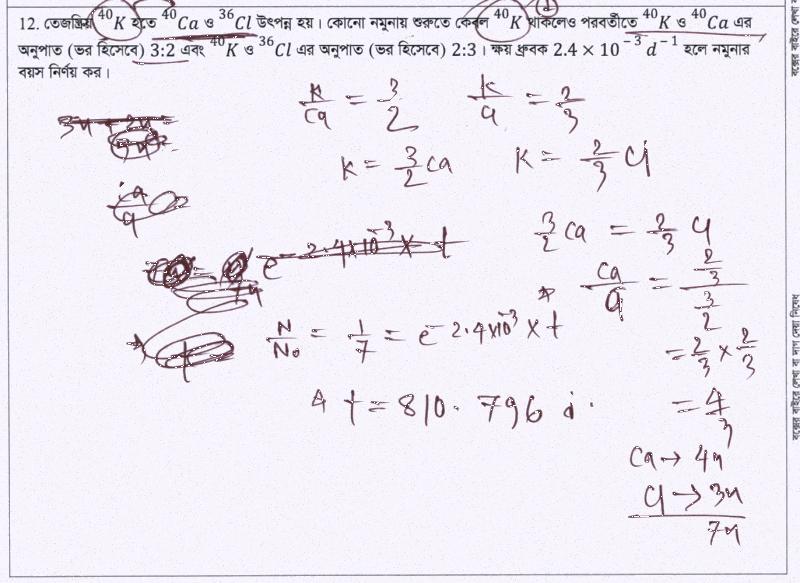 12. তেজস্ক্রিয় ⁴⁰K হতে ⁴⁰Ca ও ³⁶Cl উৎপন্ন হয়। কোনো নমুনায় শুরুতে কেবল ⁴⁰K থাকলেও পরবর্তীতে ⁴⁰K ও ⁴⁰Ca এর
অনুপাত (ভর হিসেবে) 3:2 এবং ⁴⁰K ও ³⁶Cl এর অনুপাত (ভর হিসেবে) 2:3। ক্ষয় ধ্রুবক 2.4 × 10⁻³ d⁻¹ হলে নমুনার
বয়স নির্ণয় কর।
K/Ca = 3/2
K/Cl = 2/3
K = 3/2 Ca
K = 2/3 Cl
3/2 Ca = 2/3 Cl
Ca/Cl = (2/3)/(3/2)
= 2/3 × 2/3
= 4/3
N/N₀ = 1/7 = e^-2.4×10⁻³ × t
t = 810.796 d.
Ca → 4x
Cl → 3x
7x